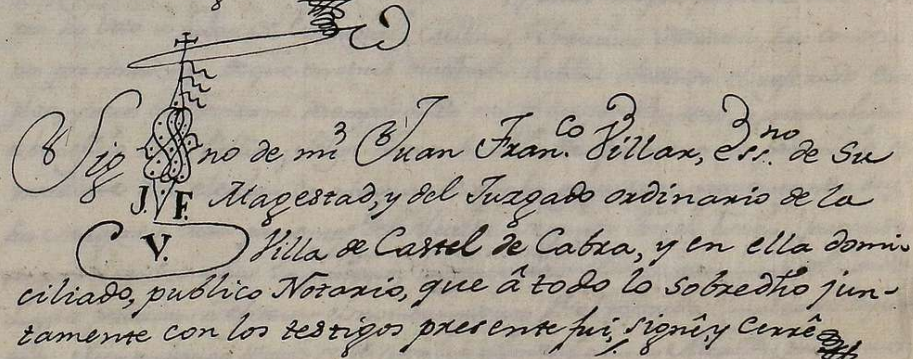 Sig no de mi Juan Fran.co Villar, ess.no de Su
J. F. Magestad, y del Juzgado ordinario de la
V. Villa de Castel de Cabra, y en ella domi-
ciliado, publico Notario, que â todo lo sobredho jun-
tamente con los testigos presente fui, signê, y cerrê